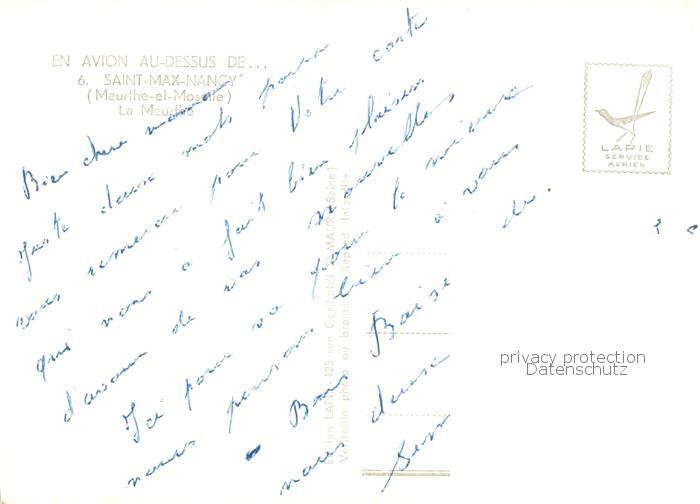 EN AVION AU-DESSUS DE...
6. SAINT-MAX-NANCY
(Meurthe-et-Moselle)
La Meurthe
LAPIE
SERVICE
AERIEN
Bien chère maman
Juste deux mots pour
vous remercier pour Votre carte
qui nous a fait bien plaisir
d'avoir de vos nouvelles
Ici pour va pour le
nous pensons bien à vous
Bons Baise de
nous deux
Edition LAPIE 125 rue Garibaldi St MAUR (Seine)
Véritable photo au bromure Reprod. Interdite
privacy protection
Datenschutz